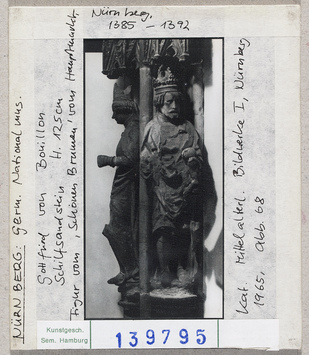 Nürnberg.
1385 – 1392
NÜRNBERG: Germ. Nationalmus.
Gottfried von Bouillon
Schilfsandstein. H. 125cm
Figur vom „Schönen Brunnen vom Hauptmarkt.
Kat. Mittelalterl. Bildwerke I, Nürnberg
1965, Abb. 68
Kunstgesch.
Sem. Hamburg
139795